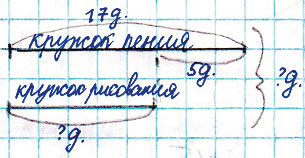 17g.
кружок пения
5g.
?g.
кружок рисования
?g.